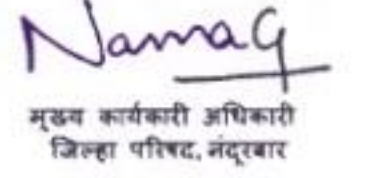 NamaG
मुख्य कार्यकारी अधिकारी
जिल्हा परिषद, नंदूरबार